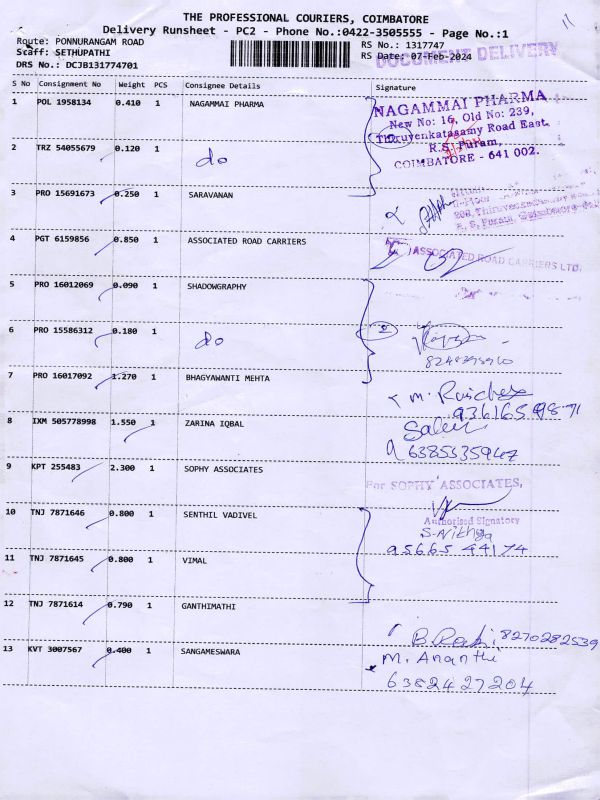 THE PROFESSIONAL COURIERS, COIMBATORE
Delivery Runsheet - PC2 - Phone No.:0422-3505555 - Page No.:1
Route: PONNURANGAM ROAD
Scaff: SETHUPATHI
DRS No.: DCJB131774701
RS No.: 1317747
RS Date: 07-Feb-2024
DOCUMENT DELIVERY
11
S No Consignment No Weight PCS Consignee Details Signature
1 POL 1958134 0.410 1 NAGAMMAI PHARMA
NAGAMMAI PHARMA
New No: 16, Old No: 239,
Thiruvenkatasamy Road East,
R.S. Puram,
COIMBATORE - 641 002.
2 TRZ 54055679 0.120 1 do
3 PRO 15691673 0.250 1 SARAVANAN
4 PGT 6159856 0.850 1 ASSOCIATED ROAD CARRIERS
ASSOCIATED ROAD CARRIERS LTD.
5 PRO 16012069 0.090 1 SHADOWGRAPHY
6 PRO 15586312 0.180 1 do
7 PRO 16017092 1.270 1 BHAGYAWANTI MEHTA
8 IXM 505778998 1.550 1 ZARINA IQBAL
9 KPT 255483 2.300 1 SOPHY ASSOCIATES
For SOPHY ASSOCIATES,
Authorised Signatory
S-Nithya
95665 44174
10 TNJ 7871646 0.800 1 SENTHIL VADIVEL
11 TNJ 7871645 0.800 1 VIMAL
12 TNJ 7871614 0.790 1 GANTHIMATHI
8270282539
13 KVT 3007567 0.400 1 SANGAMESWARA
M. Ananthi
6382427204